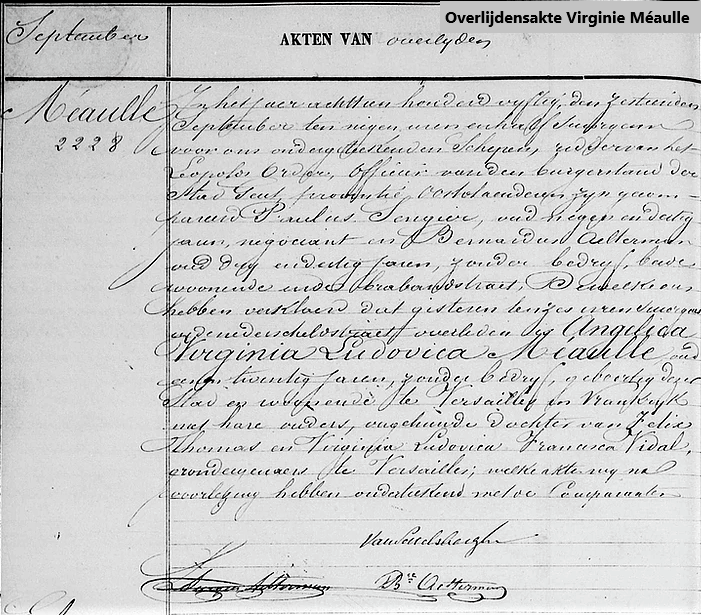 Overlijdensakte Virginie Méaulle
September
AKTEN VAN overlyden
Méaulle
2228
In het jaer achttien honderd vyftig, den zestienden
September ten negen uren en half 'smorgens
voor ons ondergeteekenden Schepen, ridder van het
Leopolds Order, officier van den burgerstand der
Stad Gent, provintie Oostvlaenderen zyn gecom-
pareerd Paulus, oud negen en dertig
jaren, negociant en Bernardus Aelterman
oud dry en dertig jaren, zonder bedryf, beide
woonende in de brabandstraet, Dewelke ons
hebben verklaerd dat gisteren ten zes uren 'smorgens
in de nederscheldstraet overleden is Angelica
Virginia Ludovica Méaulle oud
een en twintig jaren, zonder bedryf, geboortig dezer
Stad en wonende te Versailles in Vrankryk
met hare ouders, ongehuwde dochter van Felix
Thomas en Virginia Ludovica Francisca Vidal,
grondeigenaers te Versailles; welke akte wy na
voorlezing hebben onderteekend met de Comparanten
Bte Aelterman